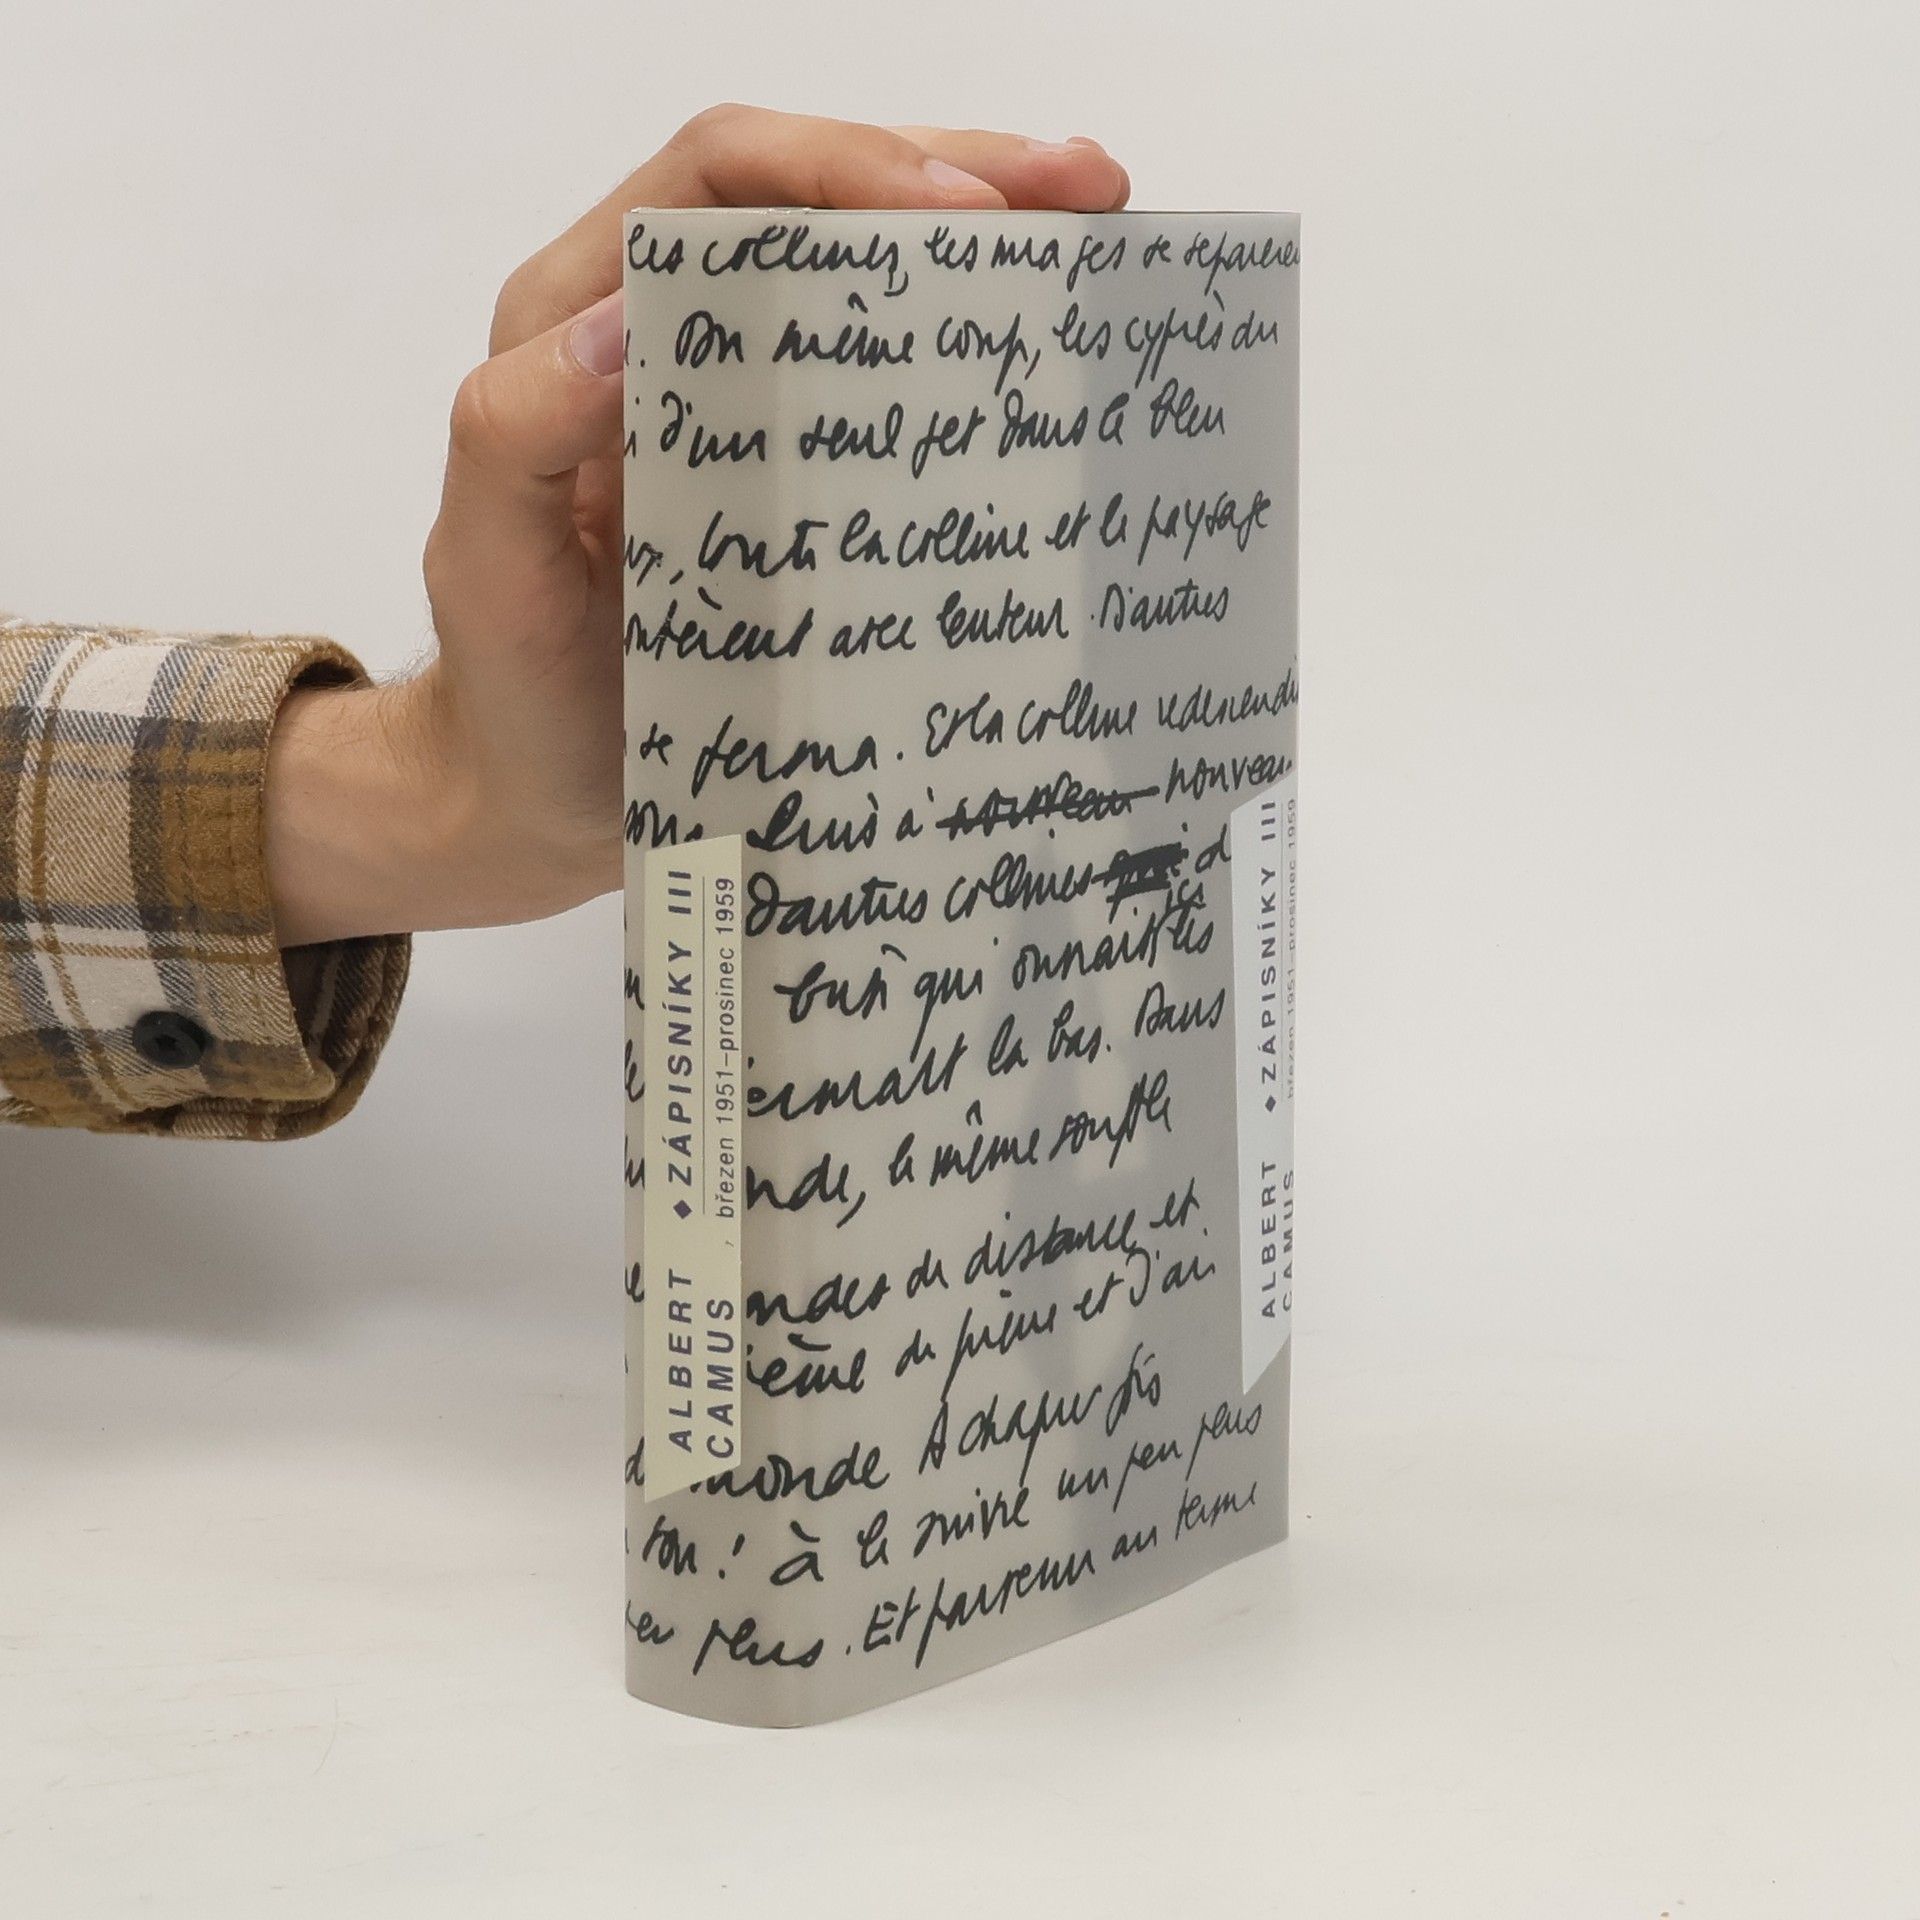 les collines, les nuages se séparèren
. Du même coup, les cyprès du
d'un seul jet dans le bleu
, toute la colline et le paysage
ontèrent avec lenteur. D'autres
se ferma. Et la colline redescendi
son. Puis à nouveau nouveau
d'autres collines qui d
qui
les
là bas. Dans
nde, le même souffle
andes de distance et
ième de pierre et j'ai
monde A chaque fois
son! à le suivre un peu plus
peu plus. Et parvenu au terme
ALBERT CAMUS
◆ ZÁPISNÍKY III
březen 1951–prosinec 1959
ALBERT CAMUS
◆ ZÁPISNÍKY III
březen 1951–prosinec 1959